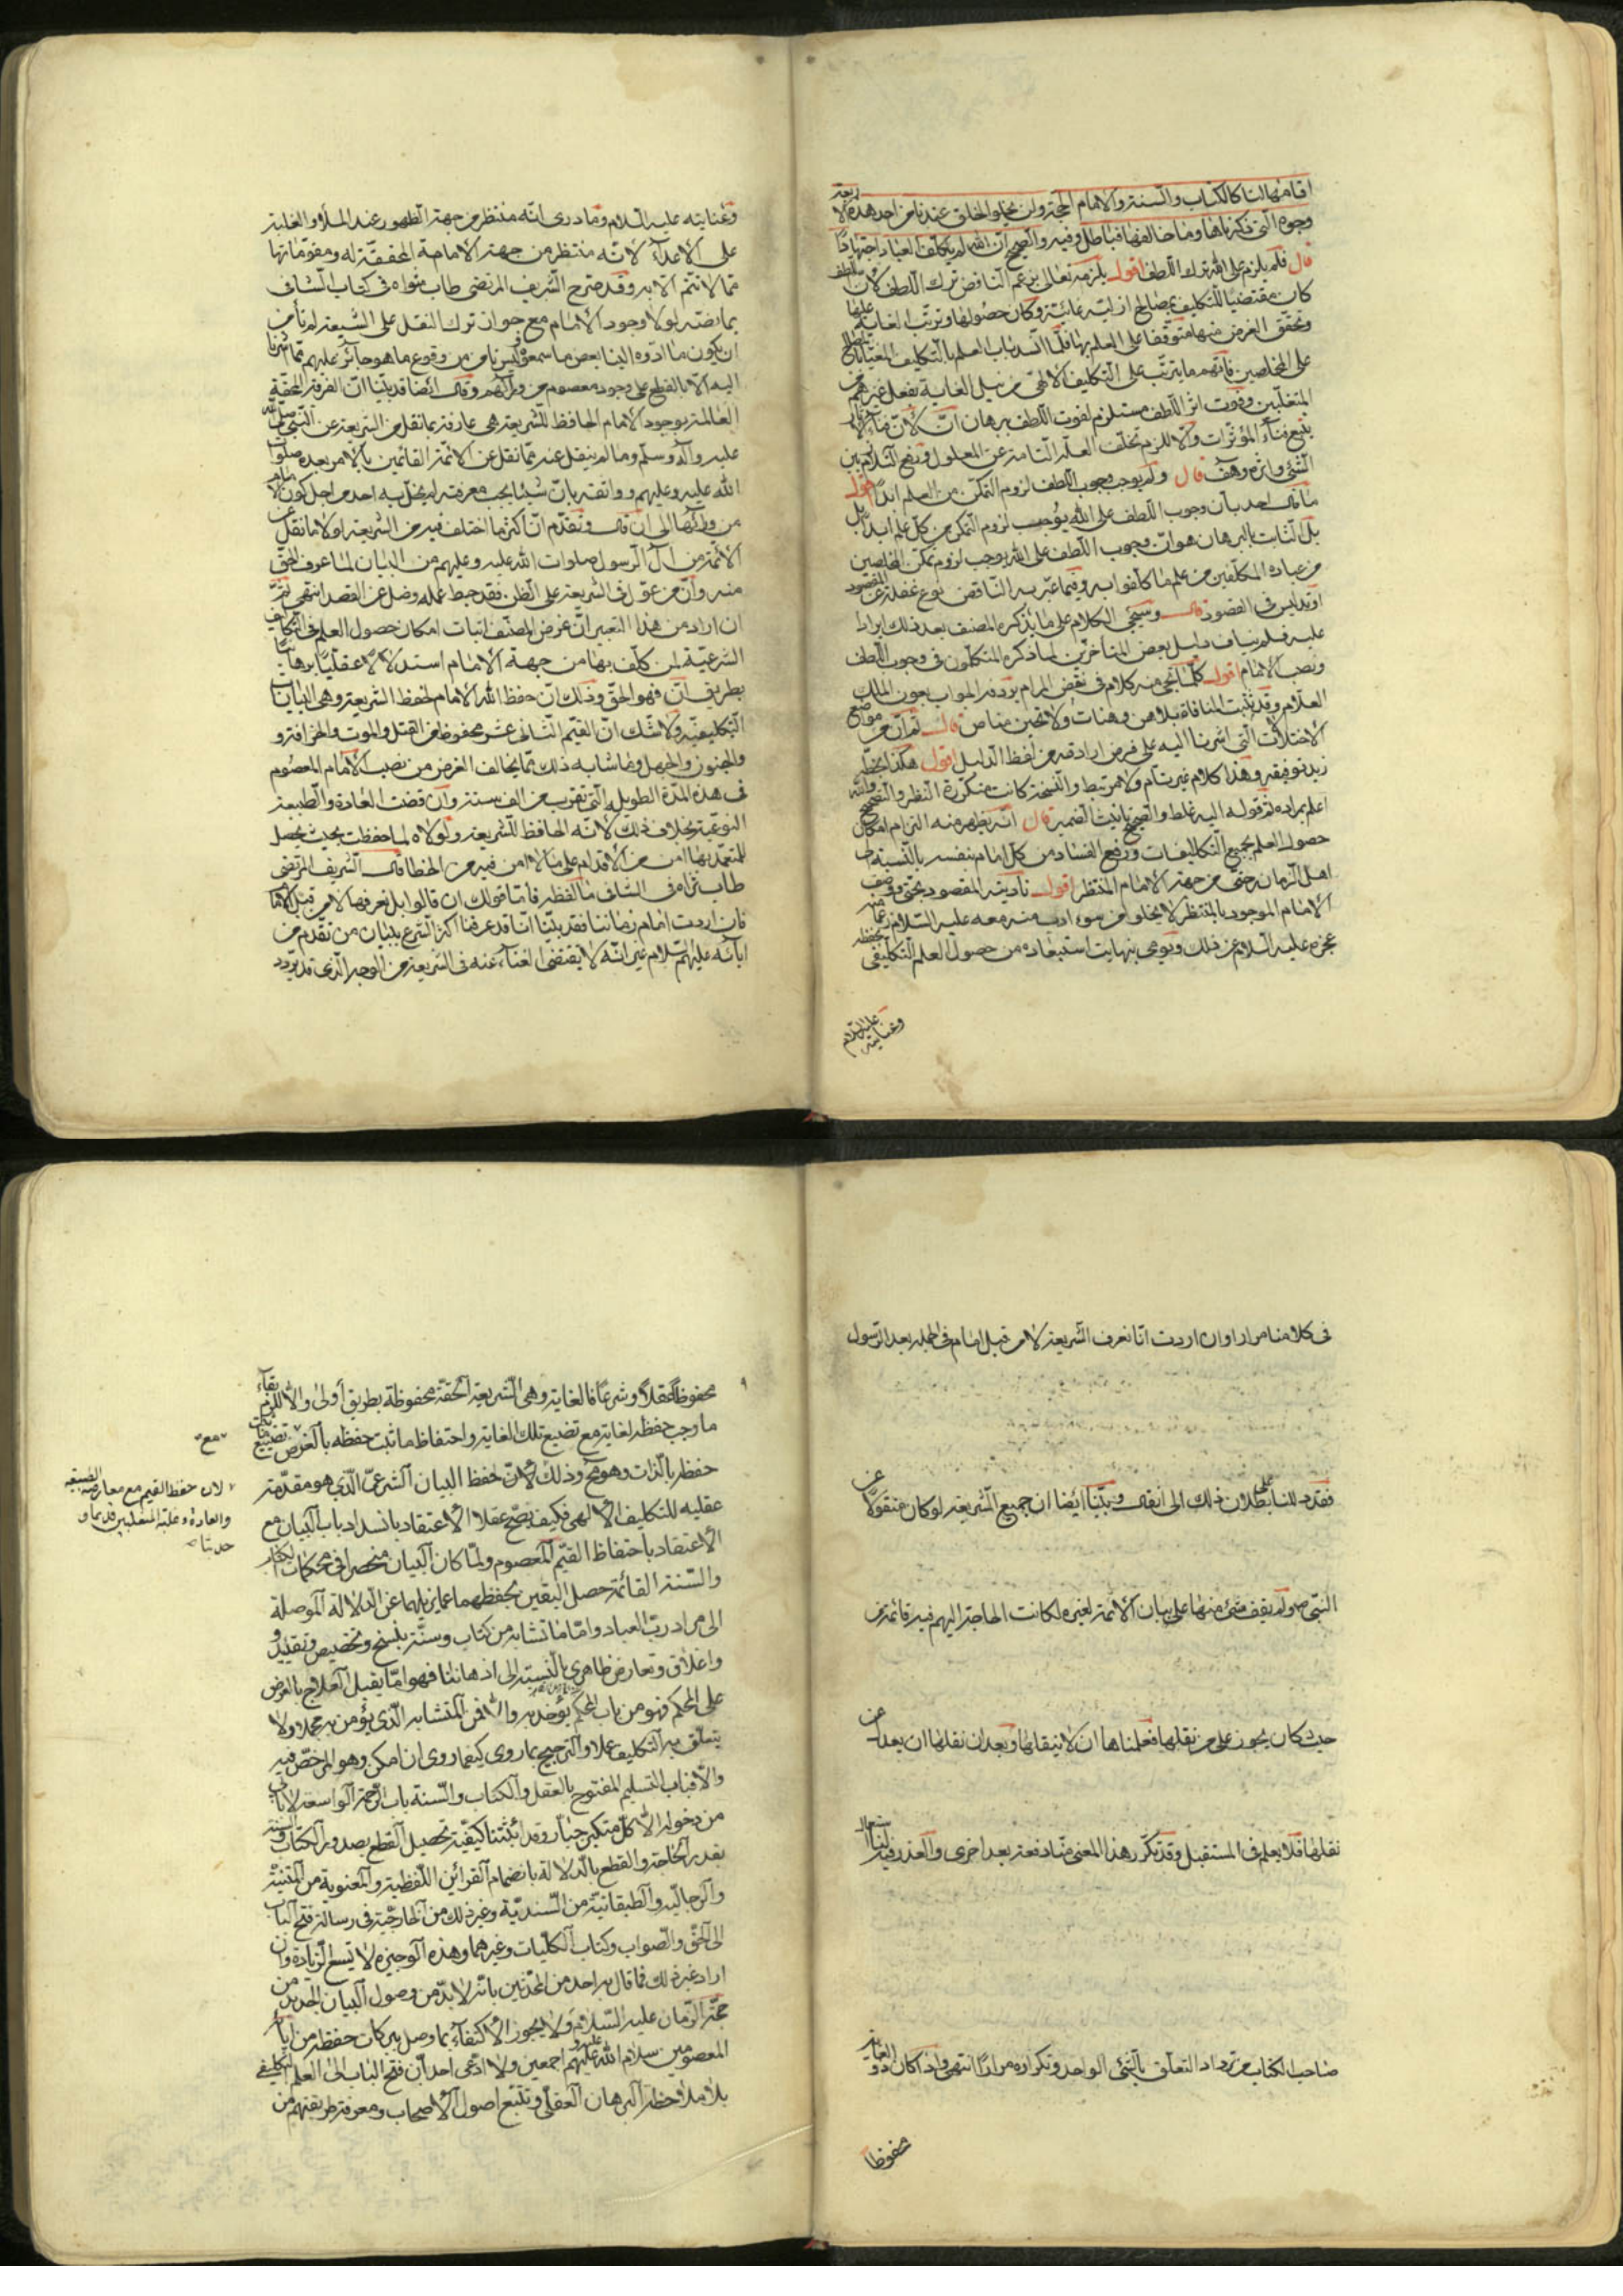 اقامها لنا كالكتاب والسنة والامام الحجة ولن يخلو الخلق عندنا من احد هذه الاربعة
وجوه التى ذكرناها وما خالفها فباطل وفيه والصحيح ان الله لم يكلف العباد اجتهادا
قال فلم يلزم على الله ترك اللطف اقول يلزمه تعالى بزعم الناقض ترك اللطف لان اللطف
كان مقتضيا للتكليف بمصالح ازلية غائية وكان حصولها وترتب الغاية عليها
وتحقق الغرض منها متوقفا على العلم بها فلما انسد باب العلم بالتكليف
على المخلصين فاتهم ما يترتب على التكليف الالهى من نيل الغاية بفعل غيرهم من
المتغلبين وفوت اثر اللطف مستلزم لفوت اللطف ببرهان ان لان فناء الاثار
يتبع فناء المؤثرات والا للزم تخلف العلة التامة عن المعلول وتفح التلازم بين
الشئ واثره وهف قال ولم يوجب وجوب اللطف لزوم التمكن من العلم ابدا اقول
ما قال احد بان وجوب اللطف على الله يوجب لزوم التمكن من كل علم ابدا بل
بل الثابت بالبرهان هو ان وجوب اللطف على الله يوجب لزوم تمكن المخلصين
من عباده المكلفين من علم ما كلفوا به وفيما عبر به الناقض نوع غفلة عن المقصود
او تدليس فى المقصود قال وسيجى الكلام على ما يذكره المصنف بعد ذلك ايرادا
عليه فلم يناف دليل بعض المتأخرين لما ذكره المتكلمون فى وجوب اللطف
ونصب الامام اقول كلما يجى منه كلام فى نقض المرام يرده المواب بعون الملك
العلام وقد ثبت المنافاة بلا هن وهنات ولا تحين مناص قال ثم ان من مواضع
الاختلات التى اشرنا اليه على فرض ارادته من لفظ الدليل اقول هكذا بخطه
زيد توفيقه وهذا كلام غير تام ولا مرتبط والنسخة كانت متكررة النظر والتصحيح والله
اعلم بمراده ثم قوله اليه غلط والصحيح تانيث الضمير قال انه يظهر منه التزام امكان
حصول العلم بجميع التكاليفات ورفع الفساد من كل امام بنفسه بالنسبة الى
اهل الزمان حتى من جهة الامام المنتظر اقول تأدية المقصود بحتى ووصف
الامام الموجود بالمنتظر لا يخلو من سوء ادب منه معه عليه السلام
عجزه عليه السلام عن ذلك ويومى بنهايت استبعاده من حصول العلم التكليفى بحفظه
وعنايته عليه السلام
وعنايته عليه السلام وما درى انه منتظر من جهة الظهور عند الملأ والغلبة
على الاعداء لا انه منتظر من جهة الامامة المحققة له ومقوماتها
مما لا تتم الا به وقد صرح الشريف المرتضى طاب مثواه فى كتاب الشافى
بما نصه لولا وجود الامام مع جواز ترك النقل على الشيعة لم نأمن
ان يكون ما ادوه الينا بعض ما سمعوه وليس نأمن من وقوع ما هو جائز عليهم مما اشرنا
اليه الا بالقطع على وجود معصوم من ورائهم وقال ايضا قد بينا ان الفرقة المحقة
العالمة بوجود الامام الحافظ للشريعة هى عارفة بما نقل من الشريعة عن النبى صلى الله
عليه وآله وسلم وما لم ينقل عنه مما نقل عن الائمة القائمين بالامر بعده صلوات
الله عليه وعليهم وواثقة بان شيئا يجب معرفته لم يخل به احد من اجل كون الامام
من ورائها الى ان قال وتقدم ان اكثر ما اختلف فيه من الشريعة لولا ما نقل عن
الائمة من آل الرسول صلوات الله عليه وعليهم من البيان لما عرف الحق
منه وان من عول فى الشريعة على الظن فقد حبط عمله وضل عن القصد انتهى ثم
ان اراد من هذا التعبير ان غرض المصنف اثبات امكان حصول العلم فى التكاليف
الشرعية لمن كلف بها من جهة الامام استدلالا عقليا برهانيا
بطريق ان فهو الحق وذلك ان حفظ الله الامام لحفظ الشريعة وهى البيانات
التكليفية ولا شك ان القيم الثانى عشر محفوظ من القتل والموت والخرافة و
والجنون والجهل وما شابه ذلك مما يخالف الغرض من نصب الامام المعصوم
فى هذه المدة الطويلة التى تقرب من الف سنة وان قضت العادة والطبيعة
النوعية بخلاف ذلك لانه الحافظ للشريعة ولولاه لما حفظت بحيث يحصل
للمتعبد بها امن من الاقدام على ما لا امن فيه من الخطا قال الشريف المرتضى
طاب ثراه فى الشافى ما لفظه فاما قولك ان قالوا بل نعرفها لا من قبل الامام
فان اردت امام زماننا فقد بينا انا قد عرفنا اكثر الشرع ببيان من تقدم من
آبائه عليهم السلام غير انه لا يقتضى الغناء عنه فى الشريعة من الوجه الذى قد تردد
فى كلامنا مرارا وان اردت انا نعرف الشريعة لا من قبل امام فى الجملة بعد الرسول
فقد دللنا على بطلان ذلك الى ان قال وبينا ايضا ان جميع الشريعة لو كان منقولا عن
النبى ص ولم يقف شئ منها على بيان الائمة لغيره لكانت الحاجة اليهم فيه قائمة من
حيث كان يجوز على من نقلها فعلمناها ان لا ينقلها وبعد ان نقلها ان يعدل عن
نقلها فلا يعلم فى المستقبل وقد تكرر هذا المعنى منا دفعة بعد اخرى والعذر فيه لنا
صاحب الكتاب من ترداد التعلق بالشئ الواحد وتكراره مرارا انتهى واذا كان ذو الغاية
محفوظا
محفوظا عقلا وشرعا فالغاية وهى الشريعة الحقة محفوظة بطريق أولى والا للزم بقاء
ما وجب حفظه لغاية مع تضيع تلك الغاية واحتفاظ ما ثبت حفظه بالعرض مع تضييع ما ثبت
حفظه بالذات وهو مح وذلك لان حفظ البيان الشرعى الذى هو مقدمة
عقلية للتكليف الالهى فكيف يصح عقلا الاعتقاد بانسداد باب البيان مع
الاعتقاد باحتفاظ القيم المعصوم ولما كان البيان منحصرا فى محكمات الكتاب
والسنة القائمة حصل اليقين بحفظهما عما يزيلهما عن الدلالة الموصلة
الى مراد رب العباد واما ما تشابه من كتاب وسنة بنسخ وتخصيص وتقييد و
واغلاق وتعارض ظاهرى بالنسبة الى اذهاننا فهو اما يقبل العلاج بالعرض
على المحكم فهو من باب المحكم يؤخذ به والا فمن المتشابه الذى يؤمن به مجملا ولا
يتعلق به التكليف عملا والترجيح بما روى كيفما روى ان امكن وهو المرخص فيه
والا فباب التسليم المفتوح بالعقل والكتاب والسنة باب الرحمة الواسعة لا يأبى
من دخوله الا كل متكبر جبار وقد اثبتنا كيفية تحصيل القطع بصدور الكتاب والسنة
بقدر الحاجة والقطع بالدلالة بانضمام القرائن اللفظية والمعنوية من المتنية
والرجالية والطبقاتية من السندية وغير ذلك من الخارجية فى رسالة فتح الباب
الى الحق والصواب وكتاب الكليات وغيرهما وهذه الوجيزة لا تسع الزيادة وان
اراد غير ذلك فما قال به احد من المحدثين بانه لا بد من وصول البيان الجديد من
حجة الزمان عليه السلام ولا يجوز الاكتفاء بما وصل ببركات حفظه من آبائه
المعصومين سلام الله عليه وعليهم اجمعين ولا ادعى احد ان فتح الباب الى العلم التكليفى
بلا ملاحظة البرهان العقلى وتتبع اصول الاصحاب ومعرفة طريقتهم من
مع
لان حفظ القيم مع معارضة الطبيعة
والعادة وغلبة المتغلبين قديما و
حديثا